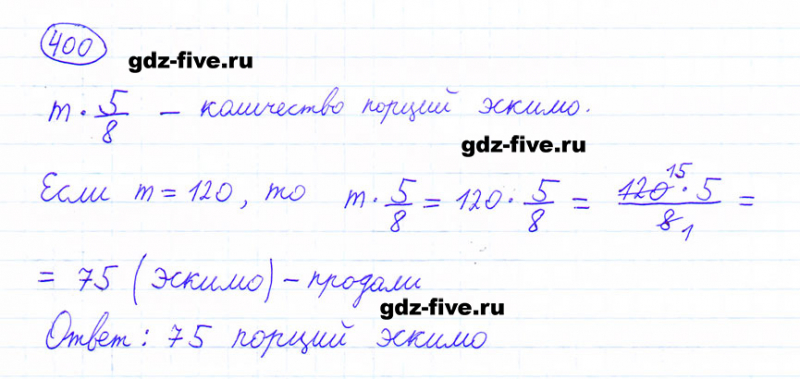 400
gdz-five.ru
m · 5/8 – количество порций эскимо.
gdz-five.ru
Если m = 120, то m · 5/8 = 120 · 5/8 = 120 15 · 5 / 8 1 =
= 75 (эскимо) – продали
gdz-five.ru
Ответ: 75 порций эскимо